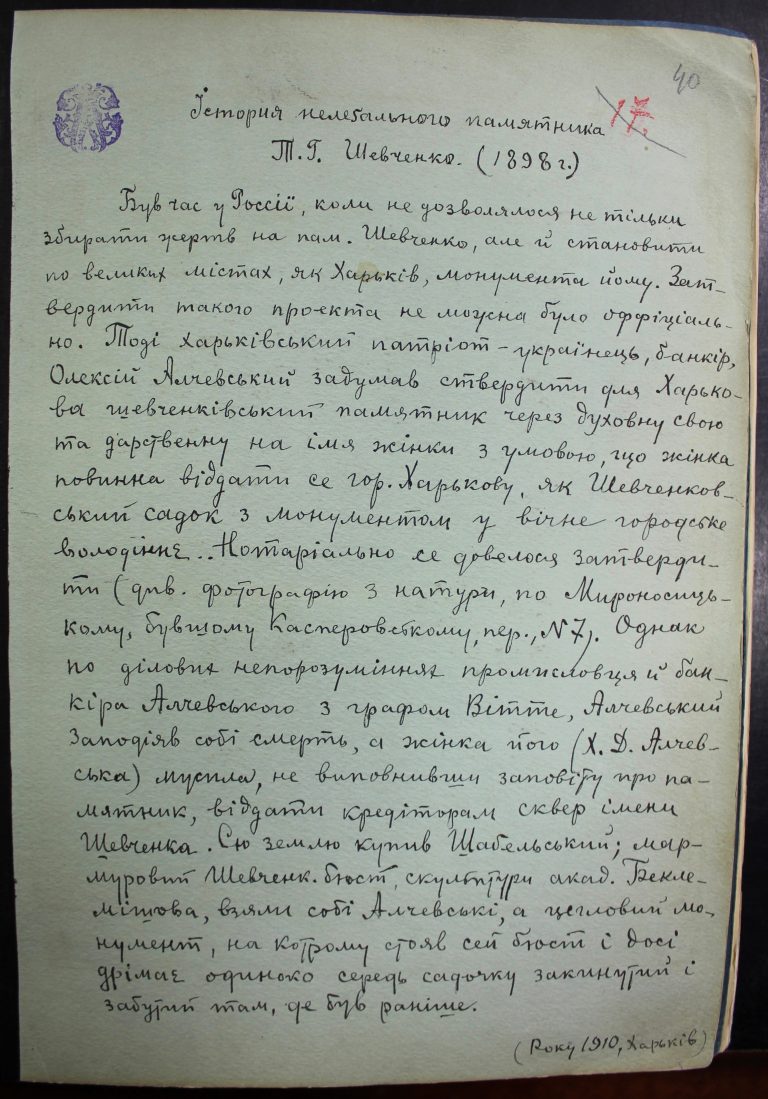 40
17.
Істория нелегального памятника
Т. Г. Шевченко. (1898 г.)
Був час у Россії, коли не дозволялося не тільки
збирати жертв на пам. Шевченко, але й становити
по великих містах, як Харьків, монумента йому. Зат-
вердити такого проекта не можна було оффіціаль-
но. Тоді харьківський патріот-українець, банкір,
Олексій Алчевський задумав ствердити для Харько-
ва шевченківський памятник через духовну свою
та дарственну на імя жінки з умовою, що жінка
повинна віддати се гор. Харькову, як Шевченков-
ський садок з монументом у вічне городське
володіннє.. Нотаріально се довелося затверди-
ти (див. фотографію з натури, по Мироносиць-
кому, бувшому Касперовському, пер., N 7). Однак
по ділових непорозуміннях промисловця й бан-
кіра Алчевського з графом Вітте, Алчевський
заподіяв собі смерть, а жінка його (Х. Д. Алчев-
ська) мусила, не виповнивши заповіту про па-
мятник, віддати кредіторам сквер імени
Шевченка. Сю землю купив Щабельський; мар-
муровий Шевченк. бюст, скульптури акад. Бекле-
мішова, взяли собі Алчевські, а цегловий мо-
нумент, на котрому стояв сей бюст і досі
дрімає одиноко середь садочку закинутий і
забутий там, де був раніше.
(Року 1910, Харьків)